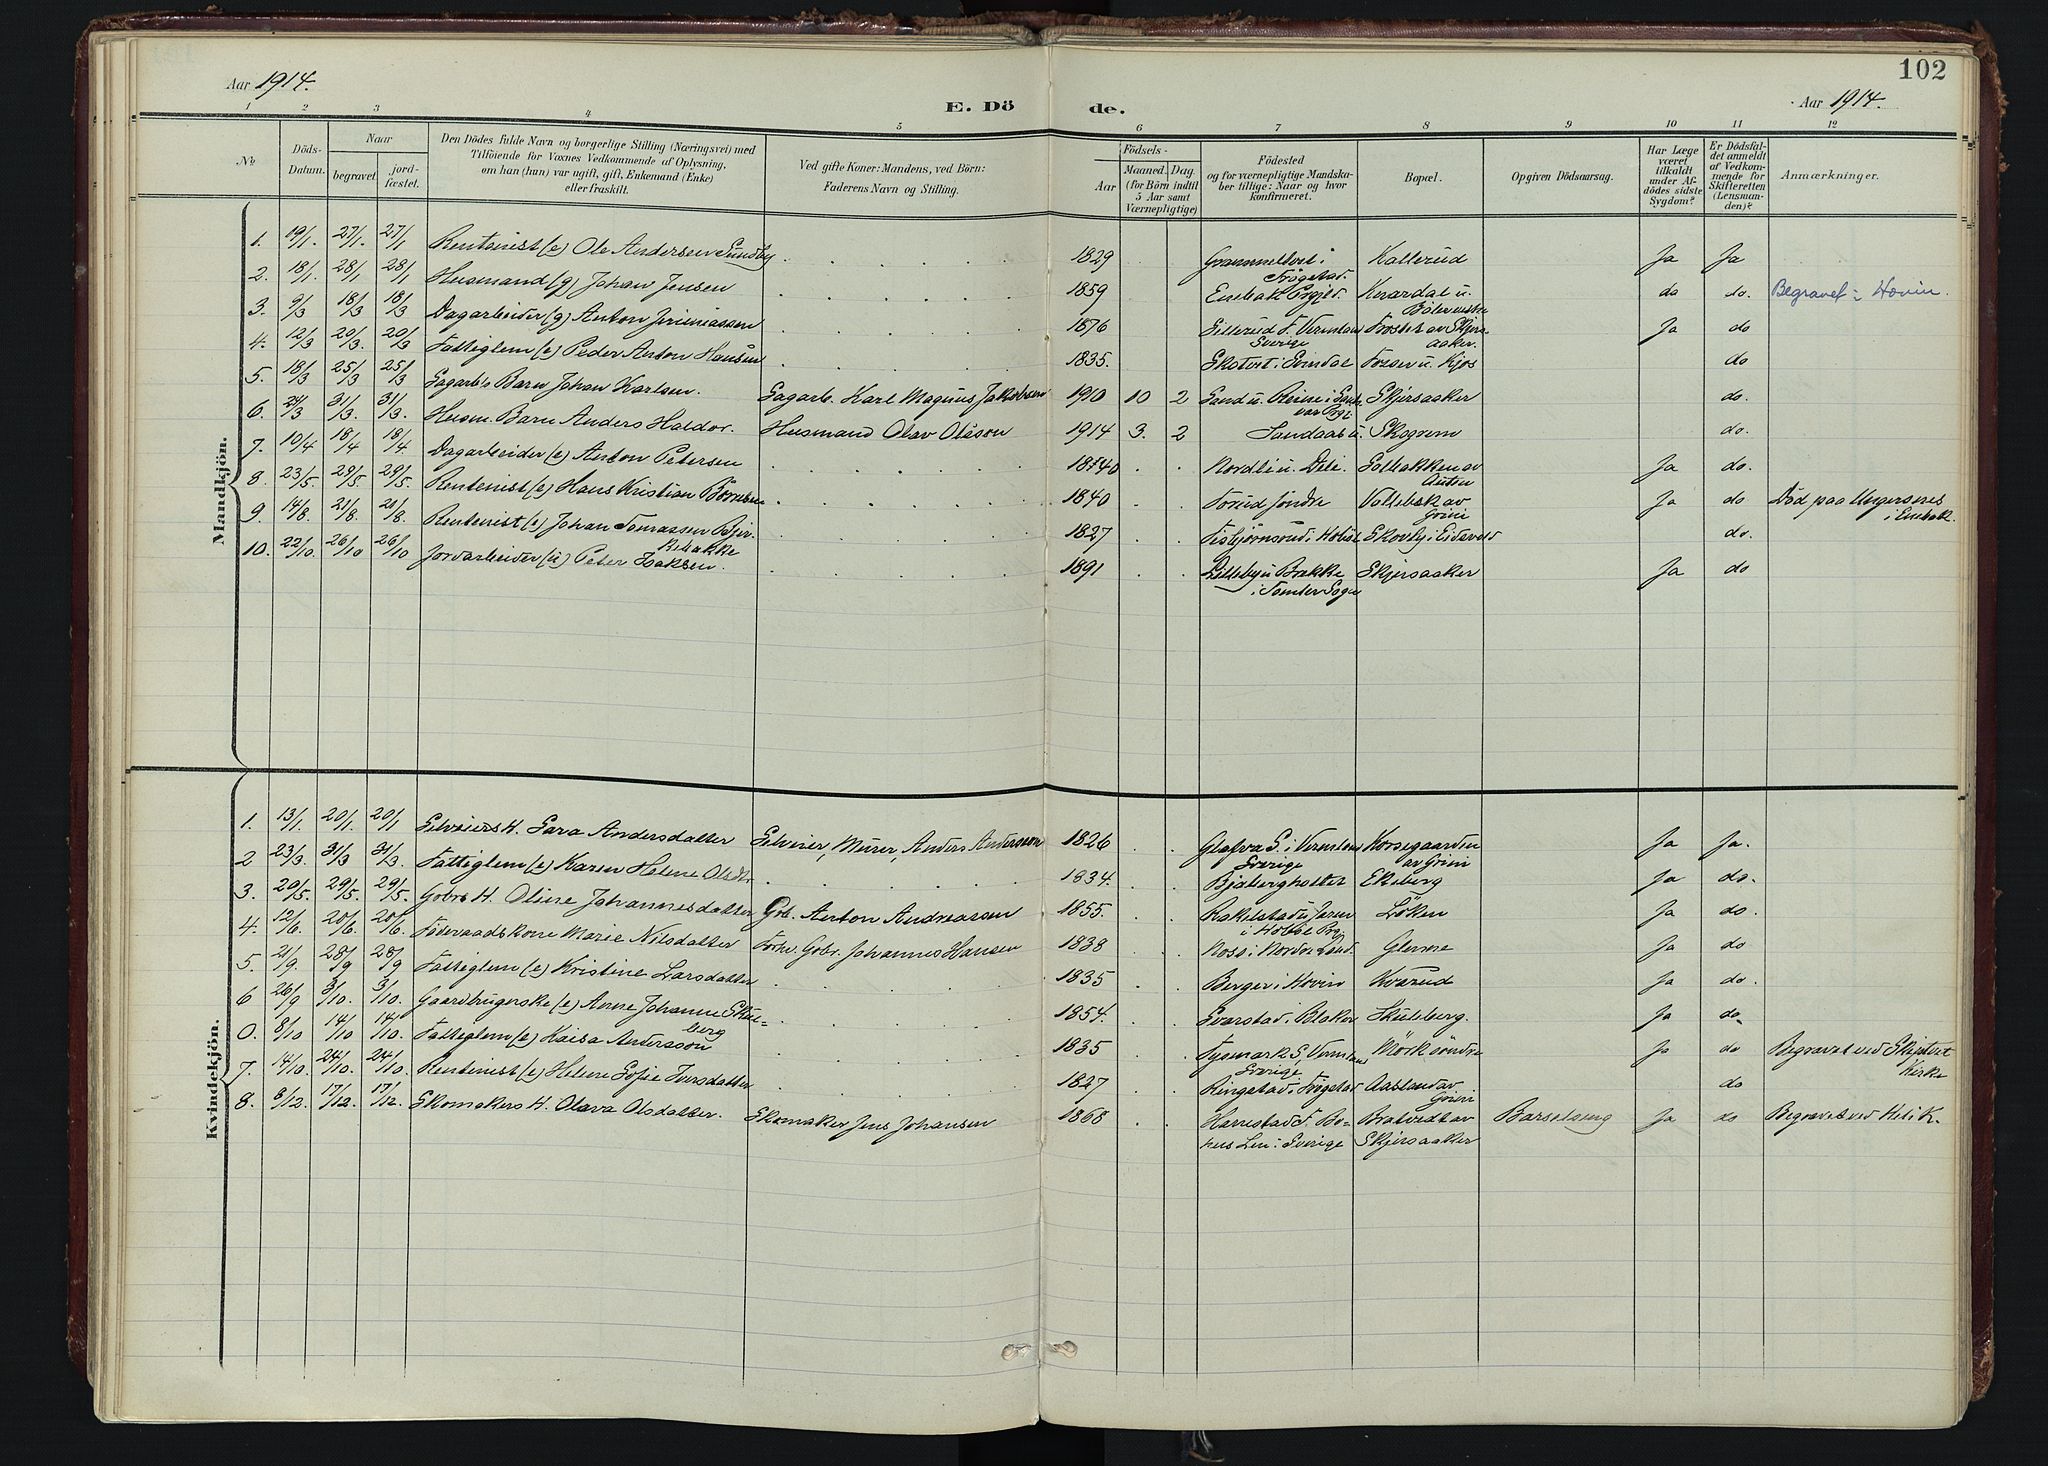 102
Aar 1914.
E. Dö de.
Aar 1914.
1 2 3 4 5 6 7 8 9 10 11 12
No
Döds-Datum.
Naar
begravet.
jordfæstet.
Den Dödes fulde Navn og borgerlige Stilling (Næringsvei) med
Tilföiende for Voxnes Vedkommende af Oplysning,
om han (hun) var ugift, gift, Enkemand (Enke)
eller fraskilt.
Ved gifte Koner: Mandens, ved Börn:
Faderens Navn og Stilling.
Födsels-
Aar
Maaned. Dag.
(for Börn indtil
5 Aar samt
Værnepligtige)
Födested
og for værnepligtige Mandska-
ber tillige: Naar og hvor
konfirmeret.
Bopæl.
Opgiven Dödsaarsag.
Har Læge
været
tilkaldt
under Af-
dödes sidste
Sygdom?
Er Dödsfal-
det anmeldt
af Vedkom-
mende for
Skifteretten
(Lensman-
den)?
Anmærkninger.
Mandkjön.
1. 19/1. 27/1. 27/1 Rentenist (e) Ole Andersen Sundby 1829 Grammeltvet i Frögstad. Kallerud Ja Ja
2. 18/1. 28/1 28/1 Husmand (g) Johan Jensen 1859 Enebak Prgjld. Knardal u. do do. Begravet i Hovin.
3. 9/3 18/3 18/3 Dagarbeider (g) Anton Jerimiassen 1876 Sillerud S. Vermland Sverige Frostet av Skjersaaker. Ja do
4. 12/3 20/3. 20/3 Fattiglem (e) Peder Anton Hansen 1835. Skotvet i Somdal Fosser u. Kjos do
5. 18/3 25/3 25/3 Sagarb's Barn Johan Karlsen. Sagarb. Karl Magnus Jakobsen 1910 10 2 Sand u. Skjersaaker do.
6. 24/3 31/3. 31/3. Husm. Barn Anders Haldor. Husmand Olav Olsson 1914 3. 2 Sandaas u. Skogrem do.
7. 10/4 18/4 18/4 Dagarbeider (e) Anton Petersen 1840 Nordli u. Deli. Solbakken av Austen Ja do.
8. 23/5. 29/5. 29/5. Rentenist (e) Hans Kristian Börresen 1840 Forud söndre Vollebæk av Grini Ja do Död paa Ungersnes i Enebak.
9. 14/8. 21/8. 21/8. Rentenist (e) Johan Tomassen 1827 Hobøl Skovly i Eidsvold do.
10. 22/10. 26/10 26/10 Jordarbeider (u) Peter Isaksen. 1891 Lilleby u Brække i Tomter Sogn Skjersaaker Ja do
Kvindekjön.
1. 13/1. 20/1. 20/1 Selveiers H. Sara Andersdatter Selveier, Murer, Anders Andersson 1826 Glafva S. i Vermland Sverige Korsegaarden av Grini Ja Ja.
2 23/3. 31/3 31/3. Fattiglem (e) Karen Helene Olsdtr. 1834. Eksberg Ja do.
3. 20/5. 29/5. 29/5. Gobrs H. Oline Johannesdatter Gbr. Anton Andreassen 1855. Rakelstad i Jaren i Hobøl Prgj. Löken Ja do.
4. 12/6. 20/6. 20/6. Föderaadskone Marie Nilsdatter Forhv. Gbr. Johannes Hansen 1838 Noss i Nordre Land Glenne Ja do
5. 21/9. 28/9 28/9 Fattiglem (e) Kristine Larsdatter 1835 Berger i Hovin Kværud Ja do.
6 26/9 3/10. 3/10. Gaardbrugerske (e) Anne Johanne Skulberg 1854. Svarstad i Blaker Skulberg. Ja do
0. 8/10 14/10 14/10. Fattiglem (e) Kaisa Andersson 1835 Fysmark S. Vermland Sverige Mörk söndre Ja do Begravet ved Skiptvet Kirke
7. 14/10. 24/10. 24/10. Rentenist (e) Helene Sofie Iversdatter 1827 Ringstad i Frögstad Aasland av Grini do
8. 8/12. 17/12. 17/12. Skomakers H. Olava Olsdatter. Skomaker Jens Johansen 1868 Harrestad S. Bohus Len i Sverige Bratvedt av Skjersaaker Barselseng Ja do Begravet ved K.